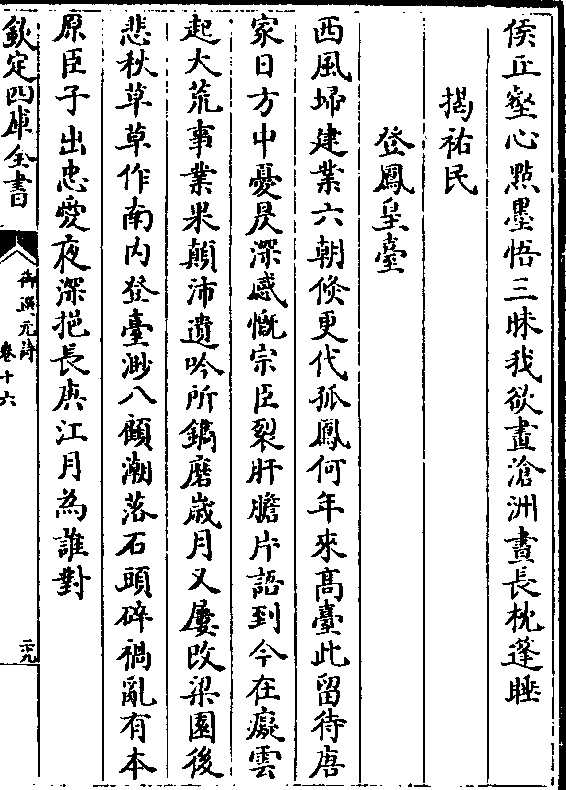 侯丘壑心㸃墨悟三昧我欲畫滄洲晝長枕蓬睡
揭祐民
登鳳皇臺
西風埽建業六朝倐更代孤鳳何年來髙臺此留待唐
家日方中憂旻深感慨宗臣裂肝膽片語到今在癡雲
起大荒事業果顛沛遺吟所鐫磨歲月又屢改梁園後
悲秋草草作南内登臺渺八顧潮落石頭碎禍亂有本
原臣子出忠愛夜深挹長庚江月為誰對
欽定四庫全書
御選元詩
卷十六
二十九